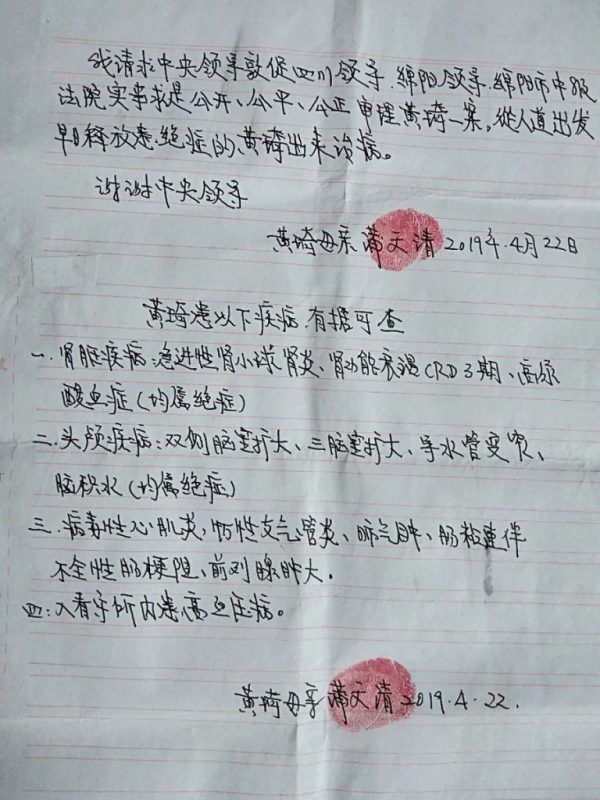 我请求中央领导敦促四川领导.绵阳领导.绵阳市中级
法院实事求是公开、公平、公正审理黄琦一案，從人道出发
早日释放患绝症的黄琦出来治病。
谢谢中央领导
黄琦母亲蒲文清2019年4月22日
黄琦患以下疾病,有据可查
一、肾脏疾病:急进性肾小球肾炎、肾功能衰竭CRD3期、高尿
酸血症(均属绝症)
二、头颅疾病:双侧脑室扩大、三脑室扩大、导水管变窄、
脑积水(均属绝症)
三、病毒性心肌炎,慢性支气管炎、肺气肿、肠粘连伴
不全性肠梗阻、前列腺肿大.
四:入看守所内患高血压病。
黄琦母亲蒲文清2019.4.22.